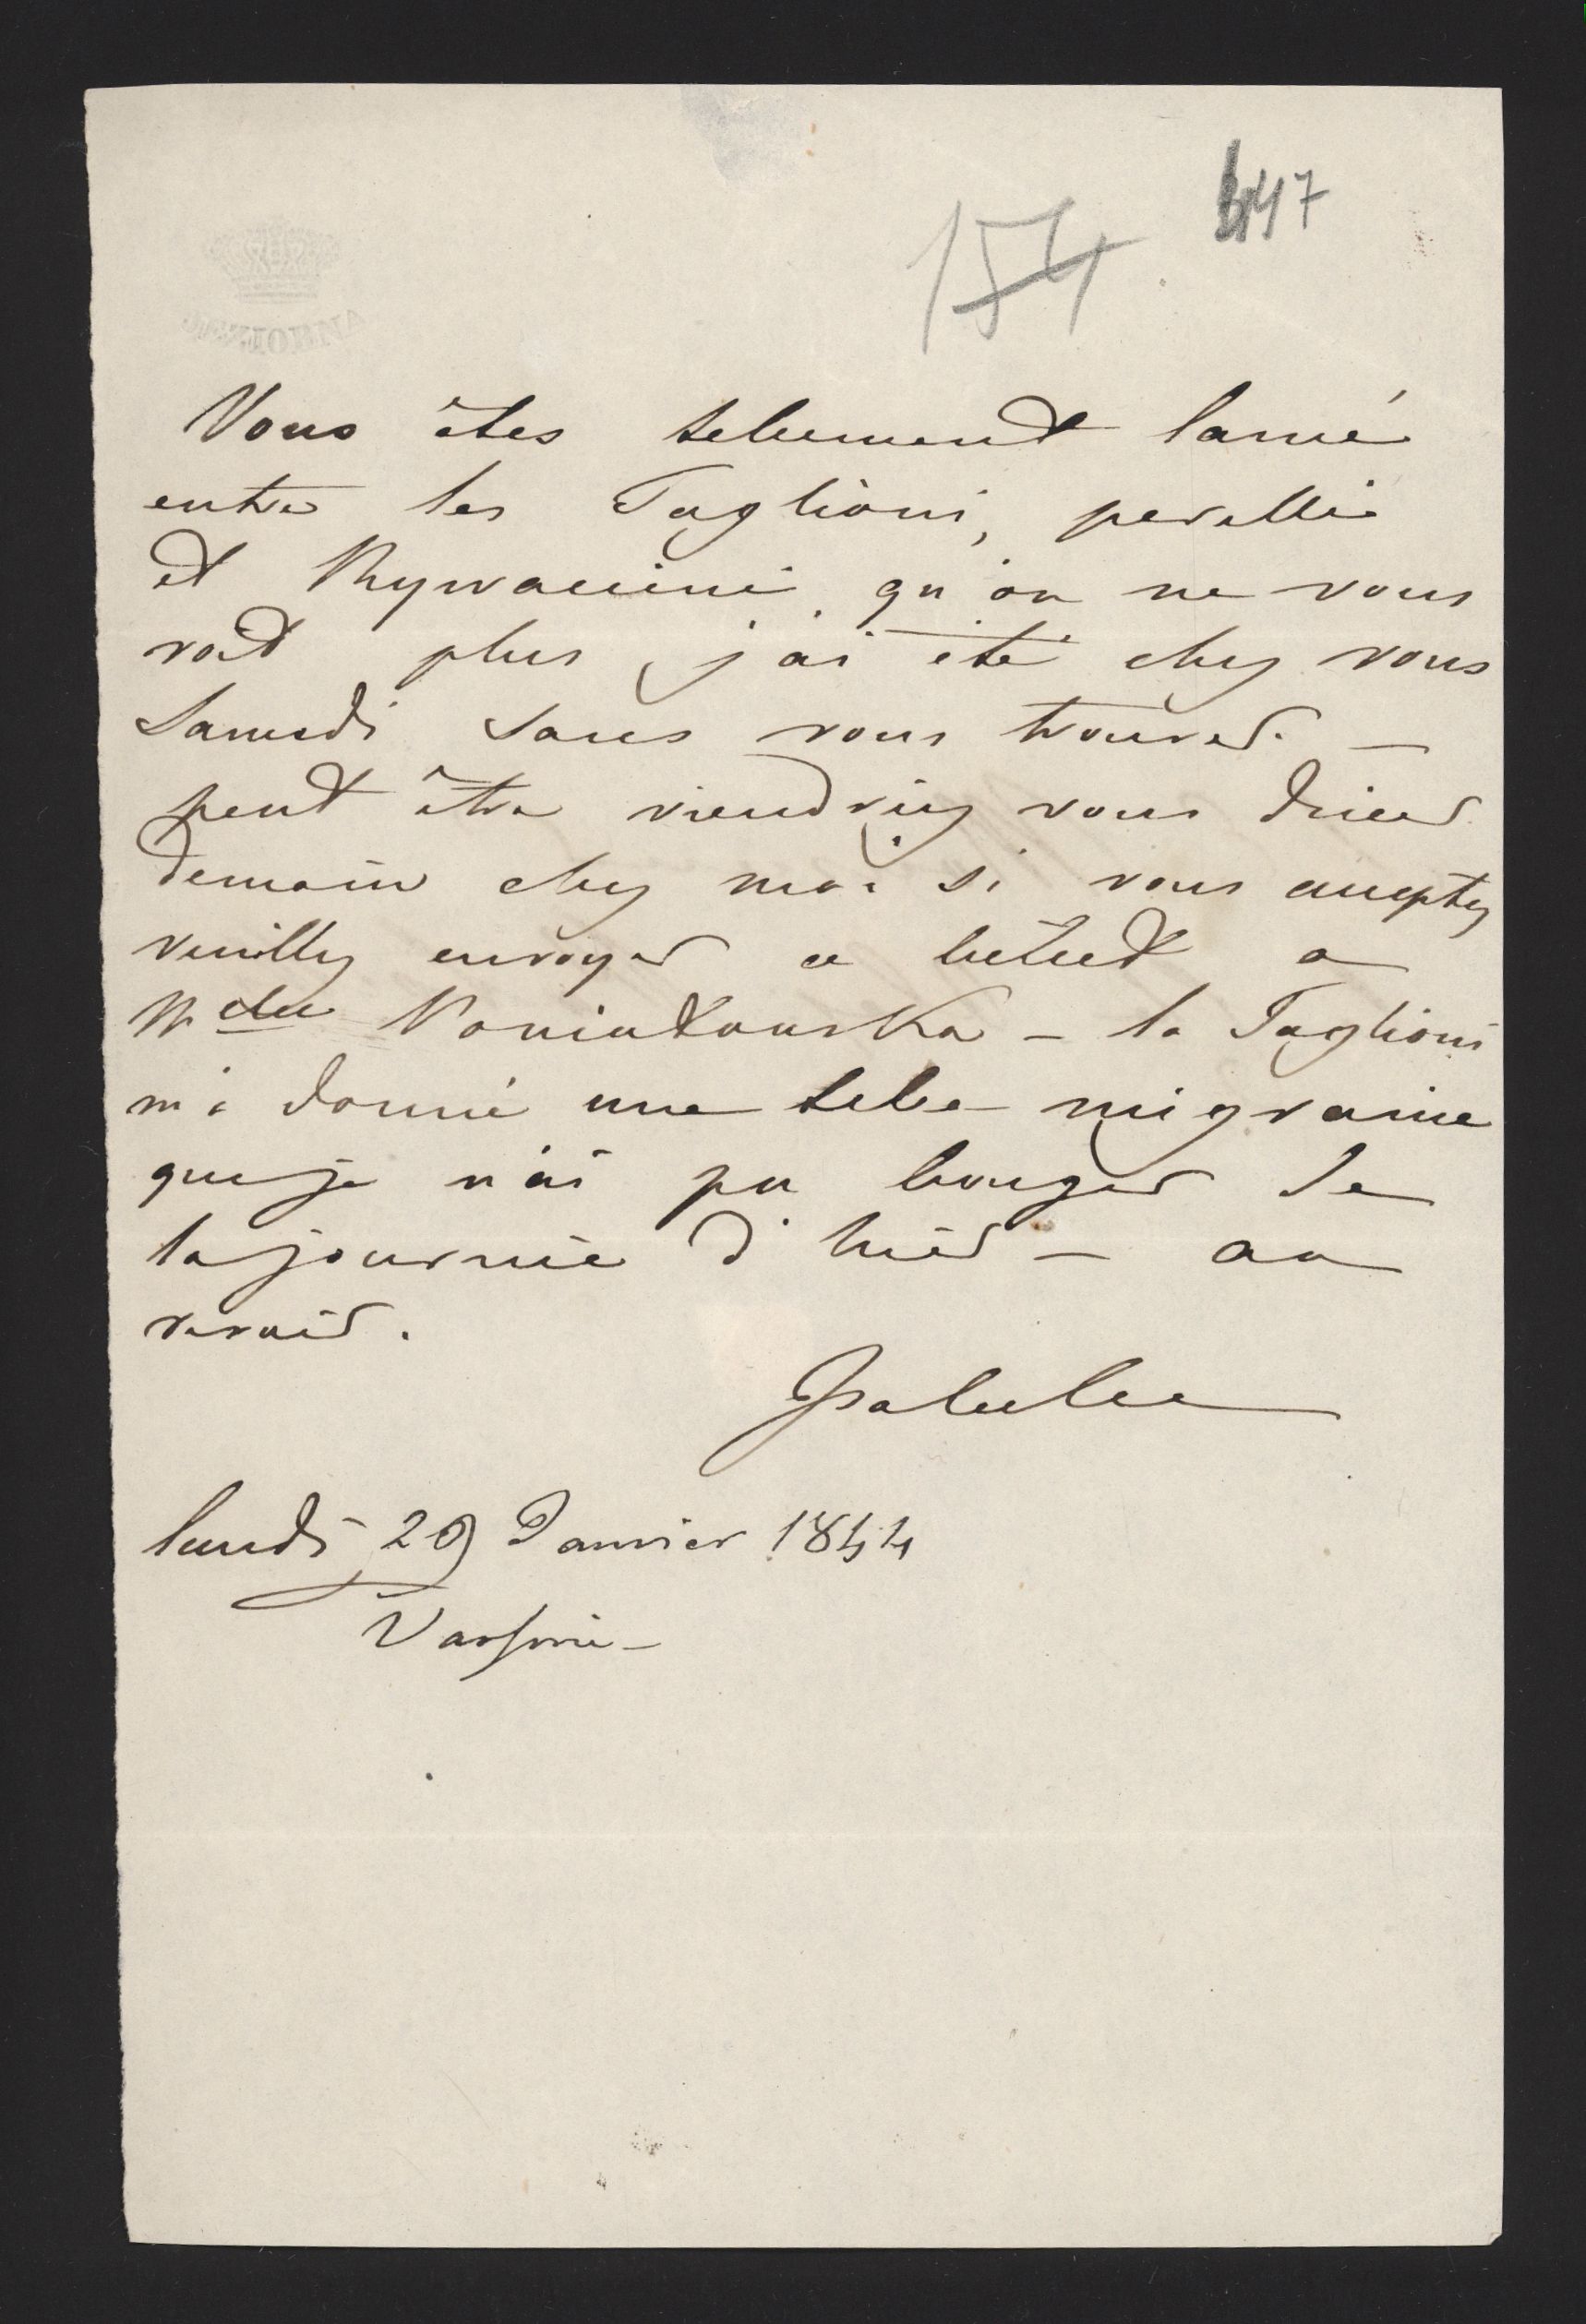 154. 347
Vous êtes tellement lancé
entre les Taglioni, perelli
et Rywaccini, qu'on ne vous
voit plus, j'ai été chez vous
Samedi sans vous trouver. —
peut être viendriez vous diner
demain chez moi si vous acceptez
veuillez envoyer ce billet a
Mdlle Poniatowska — la Taglioni
m'a donné une telle migraine
que je n'ai pu bouger de
la journée d'hier — au
revoir.
Isabelle
lundi 29 Janvier 1844
Varsovie —